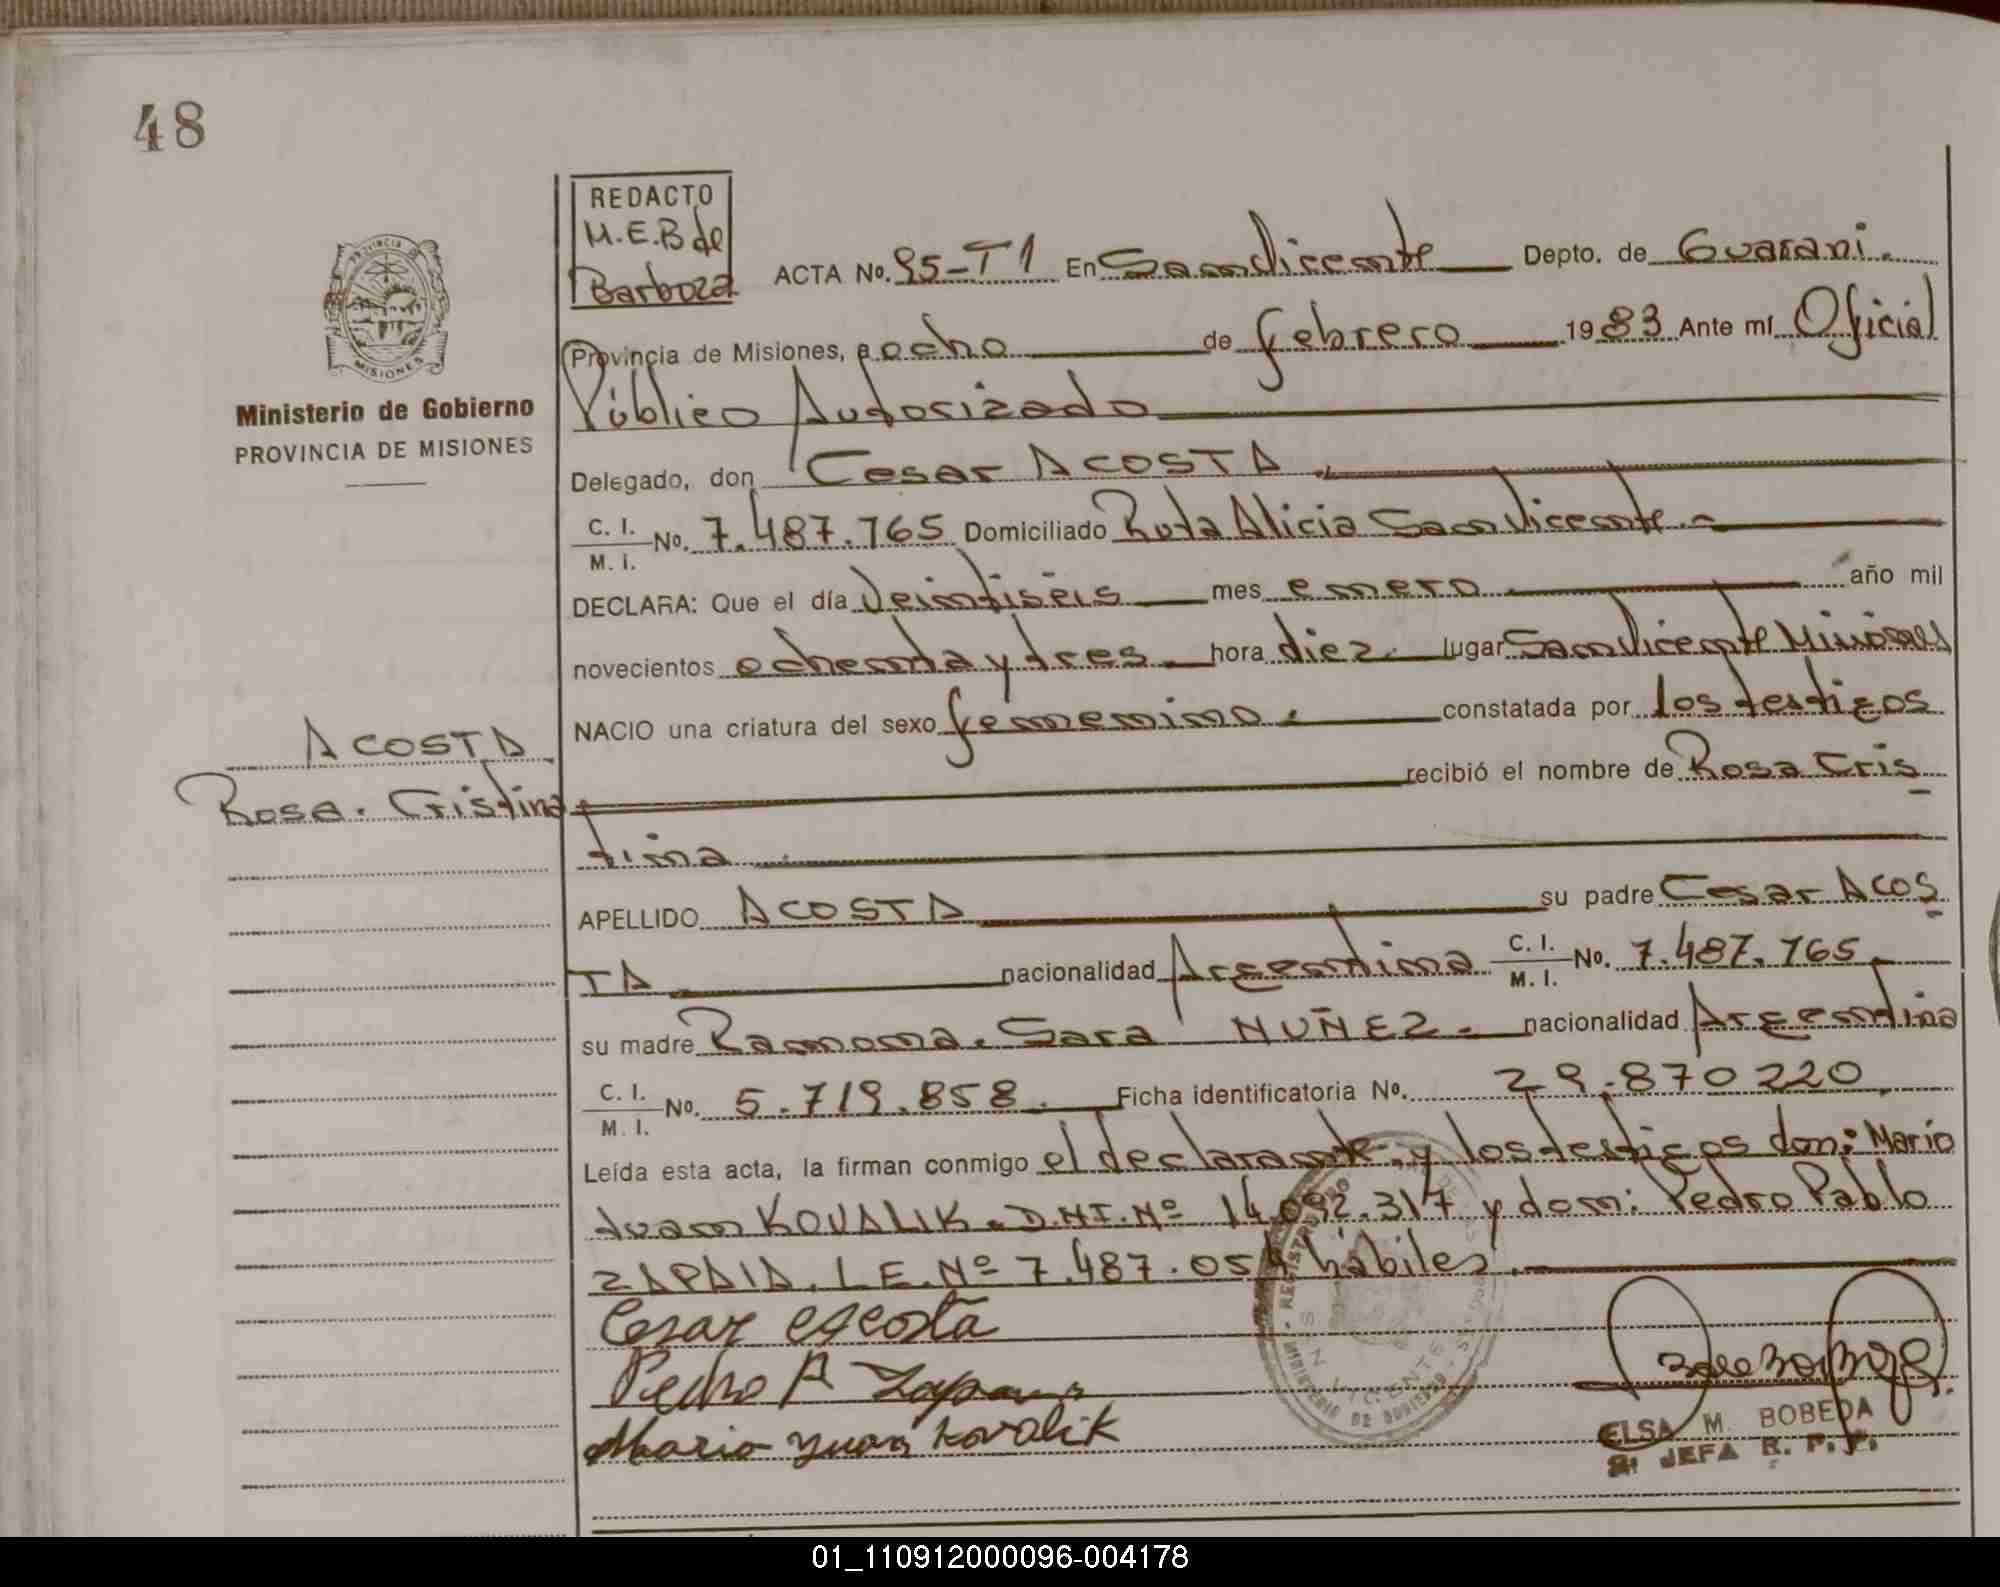 48
REDACTO
M.E.B de
Barboza
ACTA No. 95-T1 En San Vicente Depto. de Guarani.
Provincia de Misiones, a ocho de febrero 1983 Ante mí Oficial
Público Autorizado
PROVINCIA DE
MISIONES
Ministerio de Gobierno
PROVINCIA DE MISIONES
Delegado, don Cesar ACOSTA
C. I.
M. I. No. 7.487.765 Domiciliado Ruta Alicia San Vicente.-
DECLARA: Que el día Veintiseis mes enero año mil
novecientos ochenta y tres hora diez. lugar San Vicente Misiones
NACIO una criatura del sexo femenino. constatada por los testigos
ACOSTA
Rosa. Cristina
recibió el nombre de Rosa Cris
tina
APELLIDO ACOSTA su padre Cesar ACOS
TA nacionalidad Argentina C. I.
M. I. No. 7.487.765
su madre Ramona. Sara NUÑEZ. nacionalidad Argentina
C. I.
M. I. No. 5.719.858. Ficha identificatoria No. 29.870220
Leída esta acta, la firman conmigo el declarante, y los testigos don: Mario
Juan KOVALIK. D.N.I. Nº 14.092.317 y don: Pedro Pablo
L.E. Nº 7.487.054 hábiles.
Cesar Acosta
Pedro P
Mario Juan Kovalik
ELSA M. BOBEDA
JEFA R. P.
MINISTERIO DE GOBIERNO
SAN VICENTE
01_110912000096-004178